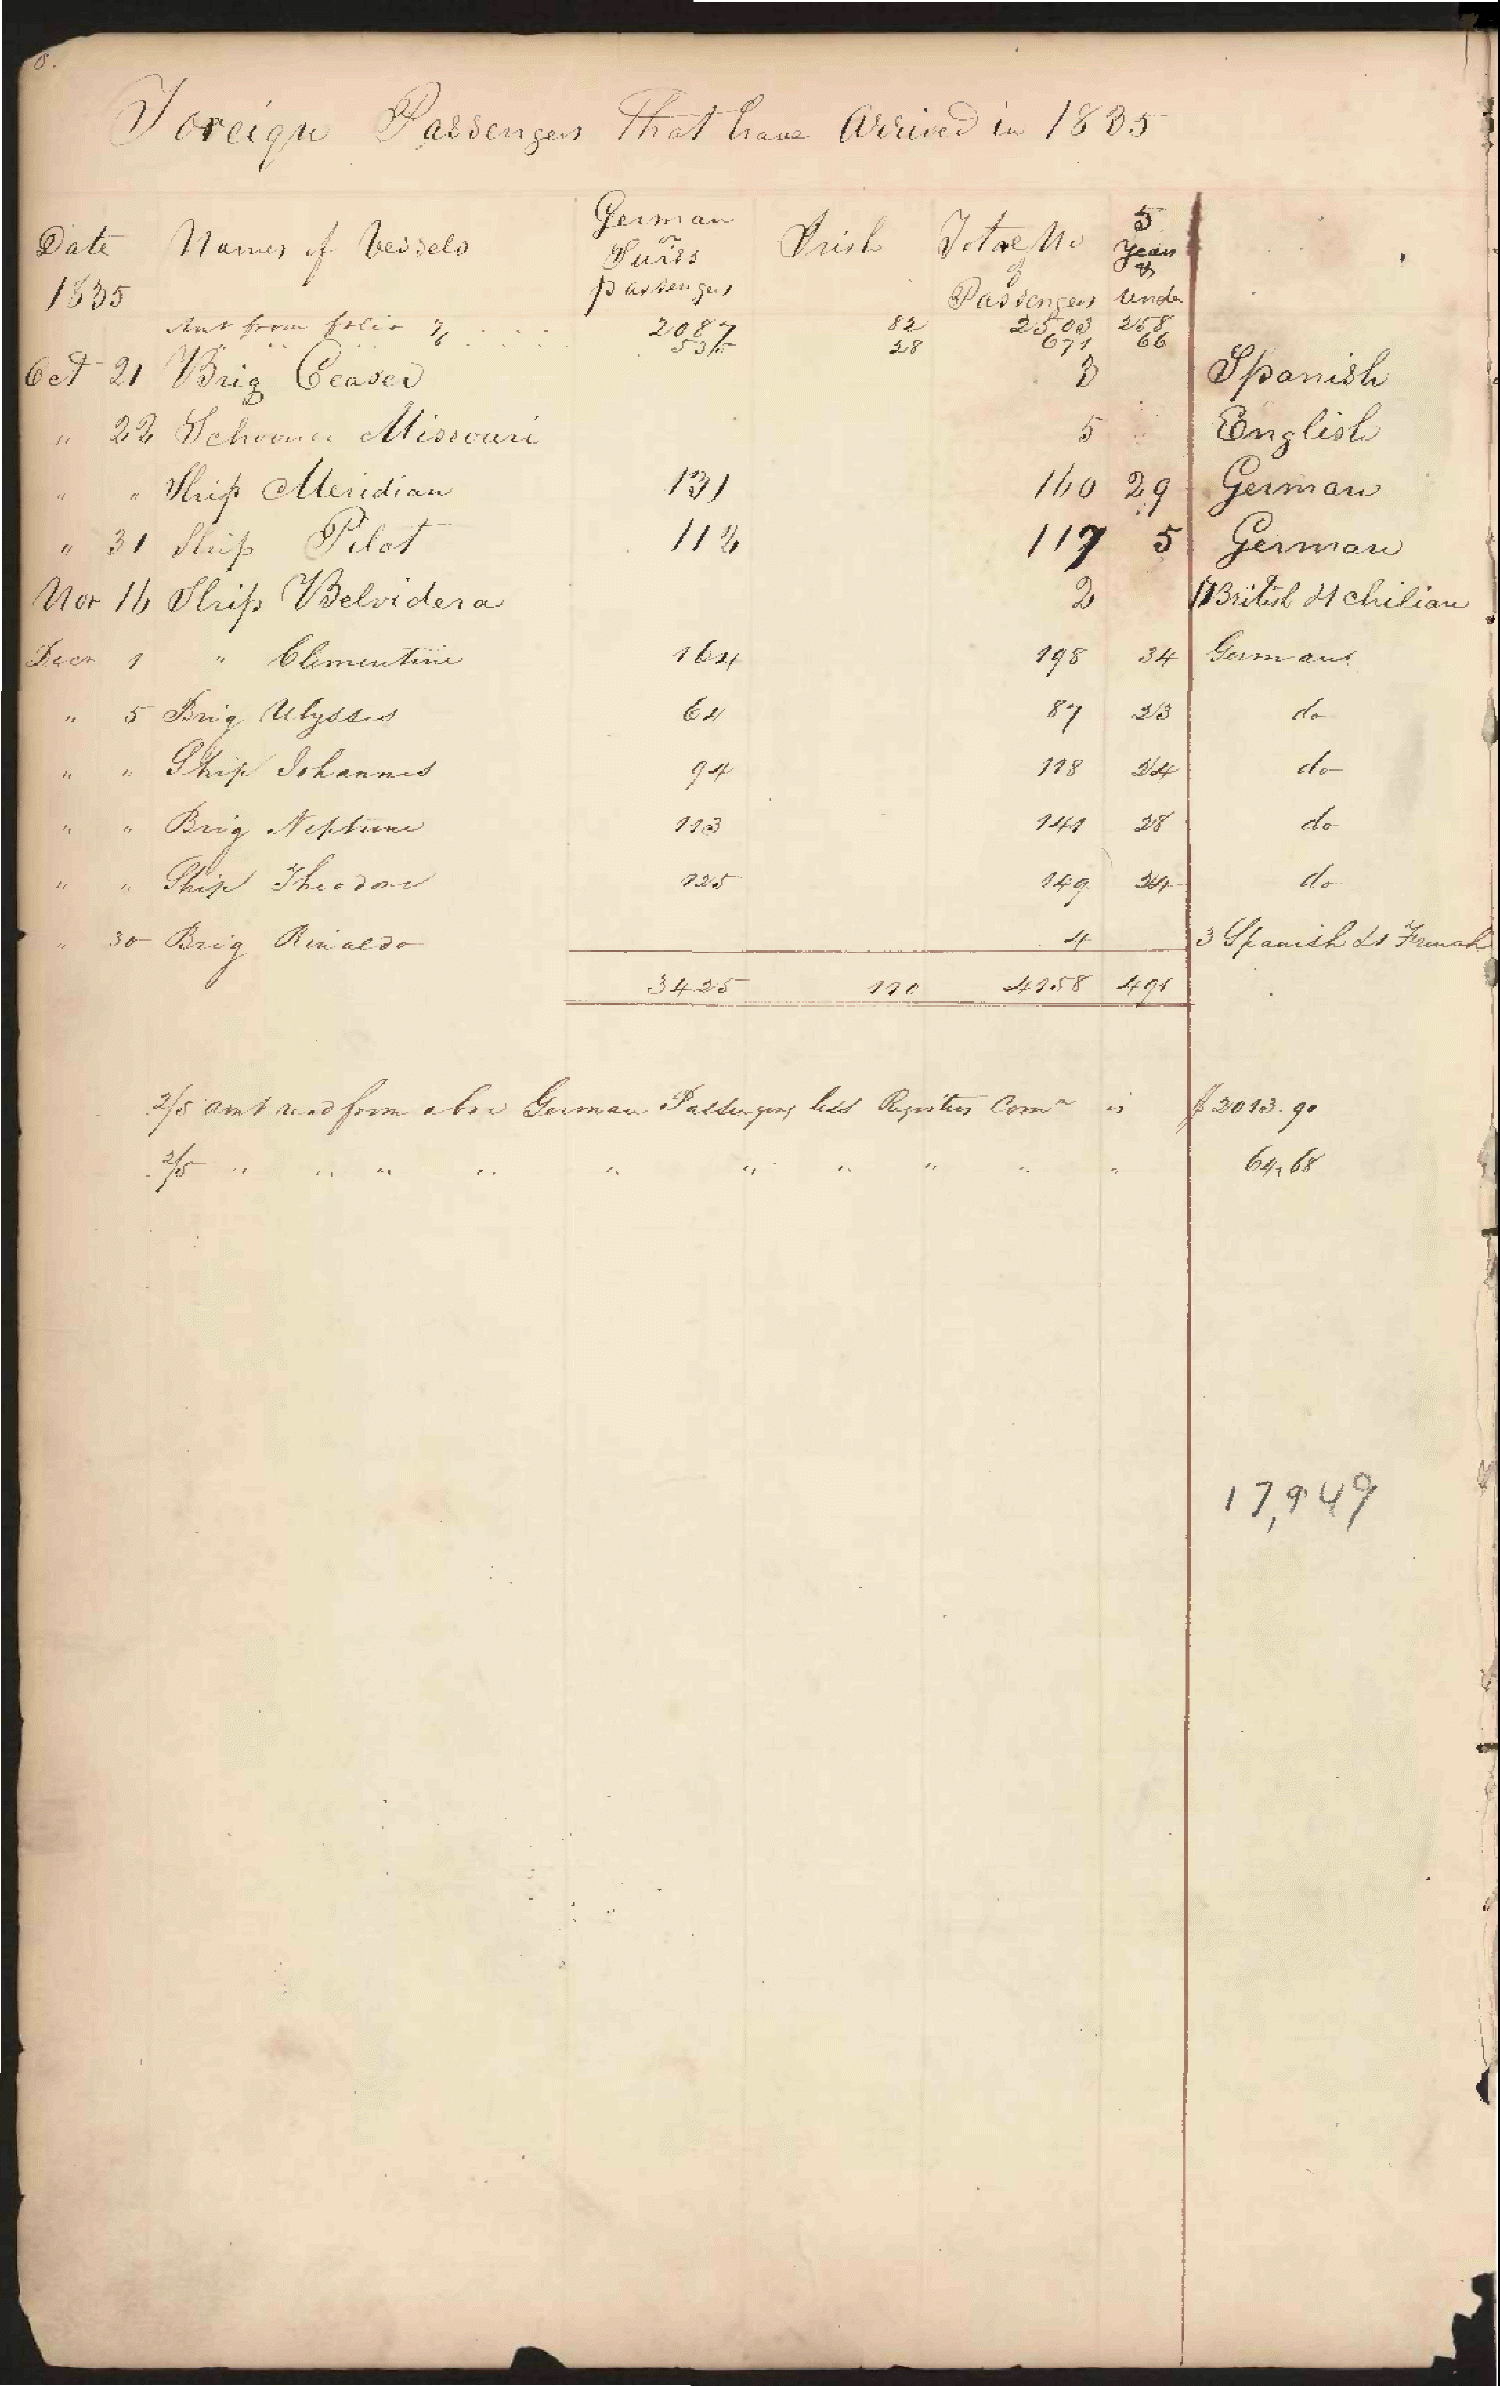 8.
Foreign Passengers That have Arrived in 1835
Date Names of Vessels German or Swiss passengers Irish Total No of Passengers 5 Years & Under
1835
Amt from folio 7 2087 82 2503 258
" " " 6 535 28 671 66
Oct 21 Brig Ceaser 3 Spanish
" 22 Schooner Missouri 5 English
" " Ship Meridian 131 160 29 German
" 31 Ship Pilot 112 117 5 German
Nov 16 Ship Belvidera 2 1 British & 1 Chilian
Decr 1 " Clementine 164 198 34 Germans
" 5 Brig Ulysses 64 87 23 do
" " Ship Johannes 94 118 24 do
" " Brig Neptune 113 141 28 do
" " Ship Theodore 125 149 24 do
" 30 Brig Rinaldo 4 3 Spanish & 1 French
3425 110 4158 491
2/5 amt recd from abov German Passengers less Registers Comn is $ 2013.90
2/5 " " " " " " " " " " 64,68
17,949